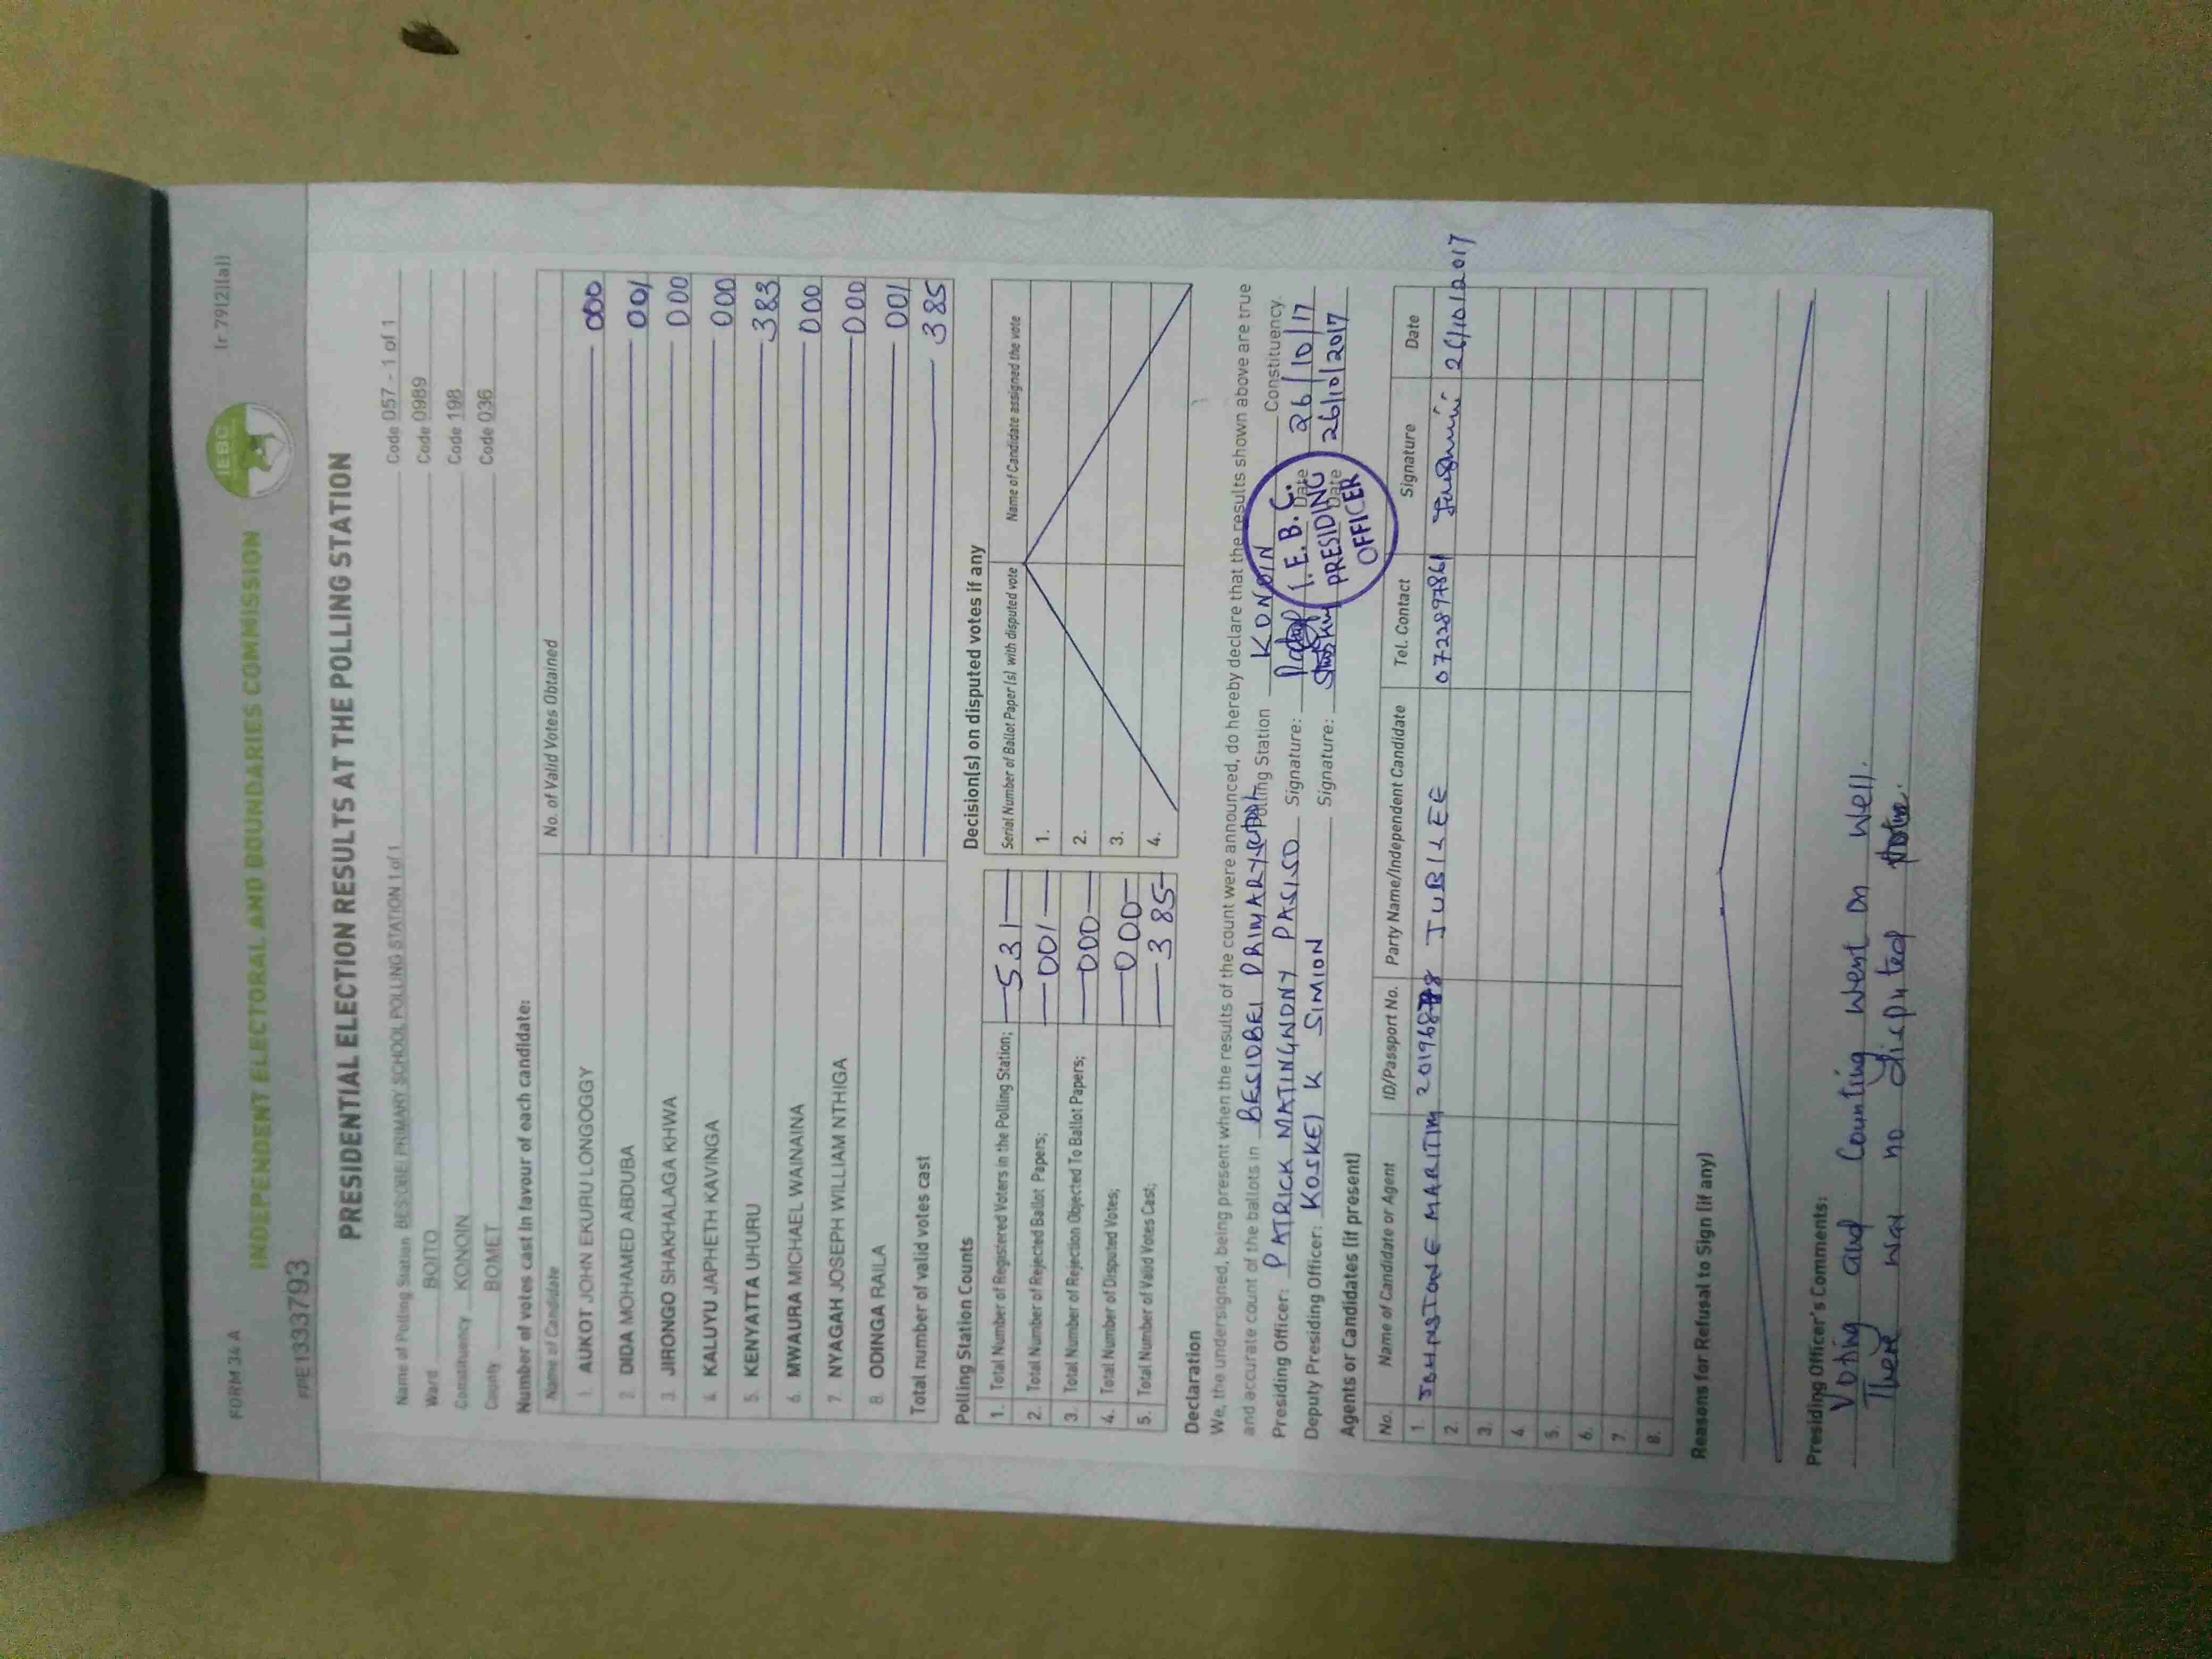 FORM 34A (r 79(2)(a))
IEBC
INDEPENDENT ELECTORAL AND BOUNDARIES COMMISSION
PPE1333793
PRESIDENTIAL ELECTION RESULTS AT THE POLLING STATION
Name of Polling Station BESIOBEI PRIMARY SCHOOL POLLING STATION 1 of 1 Code 057 - 1 of 1
Ward BOITO Code 0989
Constituency KONOIN Code 198
County BOMET Code 036
Number of votes cast in favour of each candidate:
Name of Candidate No. of Valid Votes Obtained
1. AUKOT JOHN EKURU LONGOGGY 000
2. DIDA MOHAMED ABDUBA 001
3. JIRONGO SHAKHALAGA KHWA 000
4. KALUYU JAPHETH KAVINGA 000
5. KENYATTA UHURU 383
6. MWAURA MICHAEL WAINAINA 000
7. NYAGAH JOSEPH WILLIAM NTHIGA 000
8. ODINGA RAILA 001
Total number of valid votes cast 385
Polling Station Counts
1. Total Number of Registered Voters in the Polling Station; 531
2. Total Number of Rejected Ballot Papers; 001
3. Total Number of Rejection Objected To Ballot Papers; 000
4. Total Number of Disputed Votes; 000
5. Total Number of Valid Votes Cast; 385
Decision(s) on disputed votes if any
Serial Number of Ballot Paper (s) with disputed vote Name of Candidate assigned the vote
1.
2.
3.
4.
Declaration
We, the undersigned, being present when the results of the count were announced, do hereby declare that the results shown above are true
and accurate count of the ballots in BESIOBEI PRIMARY Polling Station KONOIN Constituency.
Presiding Officer: PATRICK MATINGWONY PASISO Signature: Date 26/10/17
Deputy Presiding Officer: KOSKEI K SIMION Signature: Date 26/10/2017
I.E.B.C.
PRESIDING
OFFICER
Agents or Candidates (if present)
No. Name of Candidate or Agent ID/Passport No. Party Name/Independent Candidate Tel. Contact Signature Date
1. JOHNSTONE MARITIM JUBILEE 0722897861 26/10/2017
2.
3.
4.
5.
6.
7.
8.
Reasons for Refusal to Sign (if any)
Presiding Officer's Comments:
Voting and Counting went on well.
There was no disputed